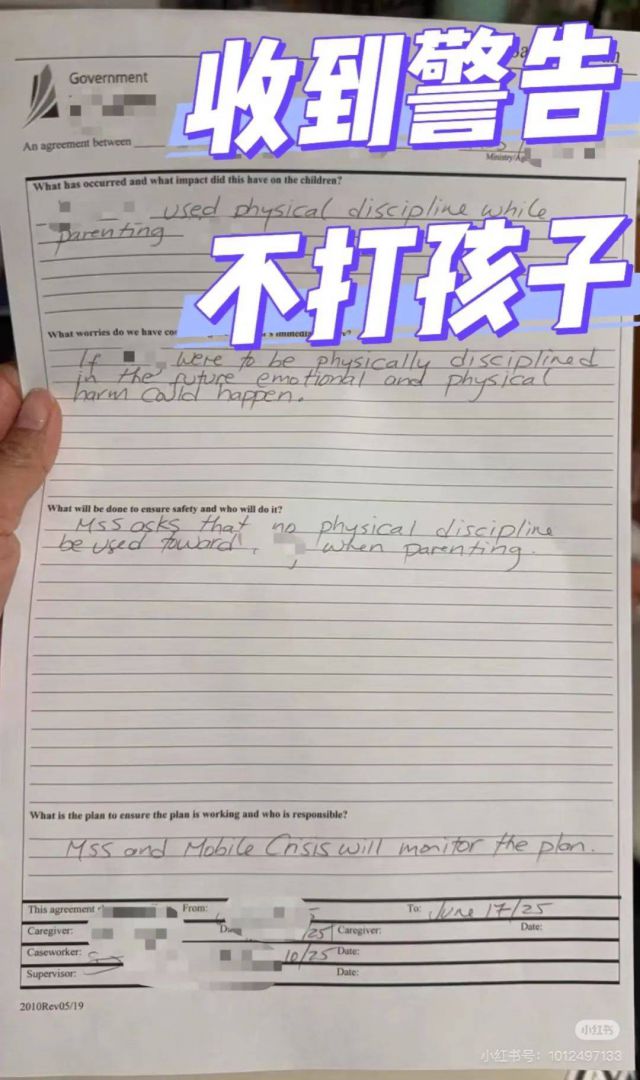 收到警告
Government
An agreement between
Ministry/
What has occurred and what impact did this have on the children?
不打孩子
used physical discipline while
parenting
What worries do we have
If were to be physically disciplined
in the future emotional and physical
harm could happen.
What will be done to ensure safety and who will do it?
MSS asks that no physical discipline
be used toward , when parenting.
What is the plan to ensure the plan is working and who is responsible?
MSS and Mobile Crisis will monitor the plan.
This agreement From: To: June 17/25
Caregiver: /25 Caregiver: Date:
Caseworker: 10/25 Date:
Supervisor: Date:
2010Rev05/19
小红书
小红书号: 1012497133